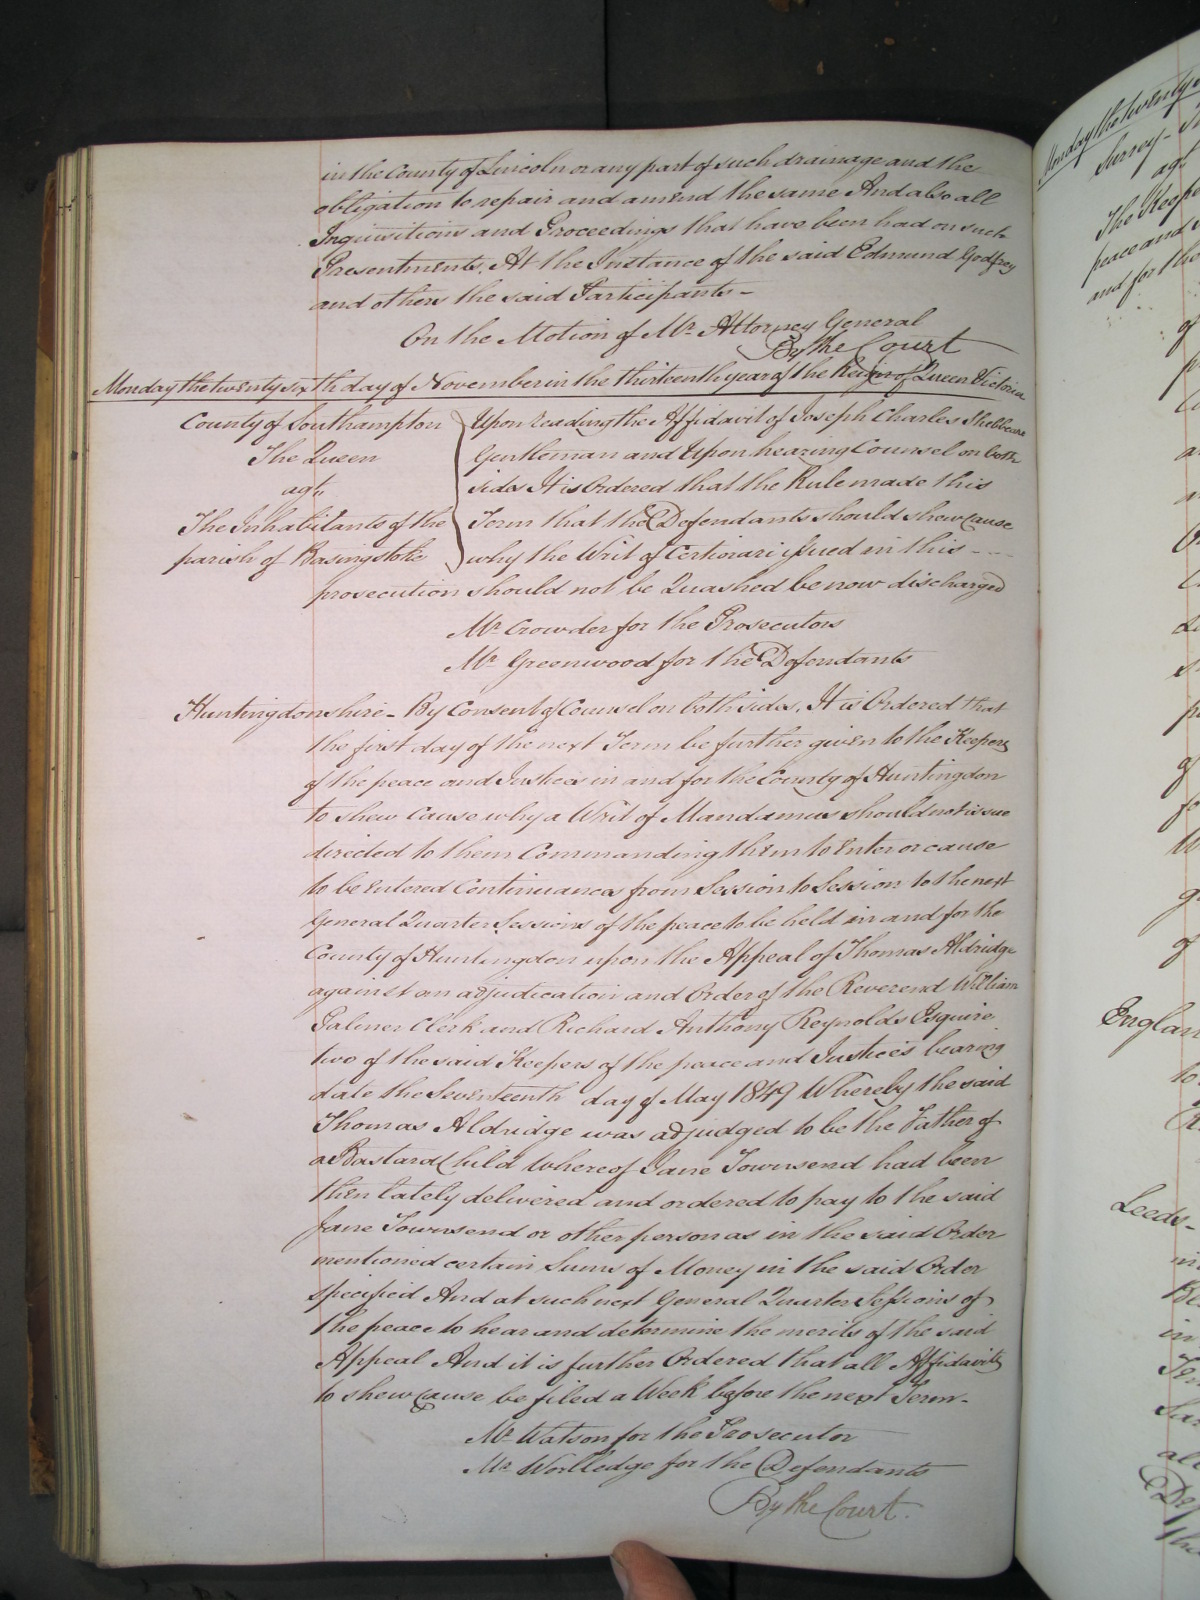 in the County of Lincoln or any part of such drainage and the
obligation to repair and amend the same And also all
Inquisitions and Proceedings that have been had on such
Presentments. At the Instance of the said Edmund Godfrey
and others the said Participants -
On the Motion of Mr. Attorney General
By the Court
Monday the twenty sixth day of November in the thirteenth year of the Reign of Queen Victoria
County of Southampton
The Queen
agt.
The Inhabitants of the
parish of Basingstoke
Upon reading the Affidavit of Joseph Charles Shebbeare
Gentleman and Upon hearing Counsel on both
sides It is Ordered that the Rule made this
Term that the Defendants should shew cause
why the Writ of Certiorari issued in this - - -
prosecution should not be Quashed be now discharged
Mr. Crowder for the Prosecutors
Mr. Greenwood for the Defendants
Huntingdonshire - By Consent of Counsel on both sides. It is Ordered that
the first day of the next Term be further given to the Keepers
of the peace and Justices in and for the County of Huntingdon
to shew Cause why a Writ of Mandamus should not issue
directed to them Commanding them to Enter or cause
to be Entered Continuances from Session to Session to the next
General Quarter Sessions of the peace to be held in and for the
County of Huntingdon upon the Appeal of Thomas Aldridge
against an adjudication and Order of the Reverend William
Palmer Clerk and Richard Anthony Reynolds Esquire
two of the said Keepers of the peace and Justices bearing
date the Seventeenth day of May 1849 Whereby the said
Thomas Aldridge was adjudged to be the Father of
a Bastard Child whereof Jane Townsend had been
then lately delivered and ordered to pay to the said
Jane Townsend or other person as in the said Order
mentioned certain Sums of Money in the said Order
specified And at such next General Quarter Sessions of
the peace to hear and determine the merits of the said
Appeal And it is further Ordered that all Affidavits
to shew cause be filed a Week before the next Term -
Mr. Watson for the Prosecutor
Mr. Worlledge for the Defendants
By the Court.
Monday the twenty
Surrey -
agt
The Keep
peace and
and for tho
of
Englan
to
Leeds -
in